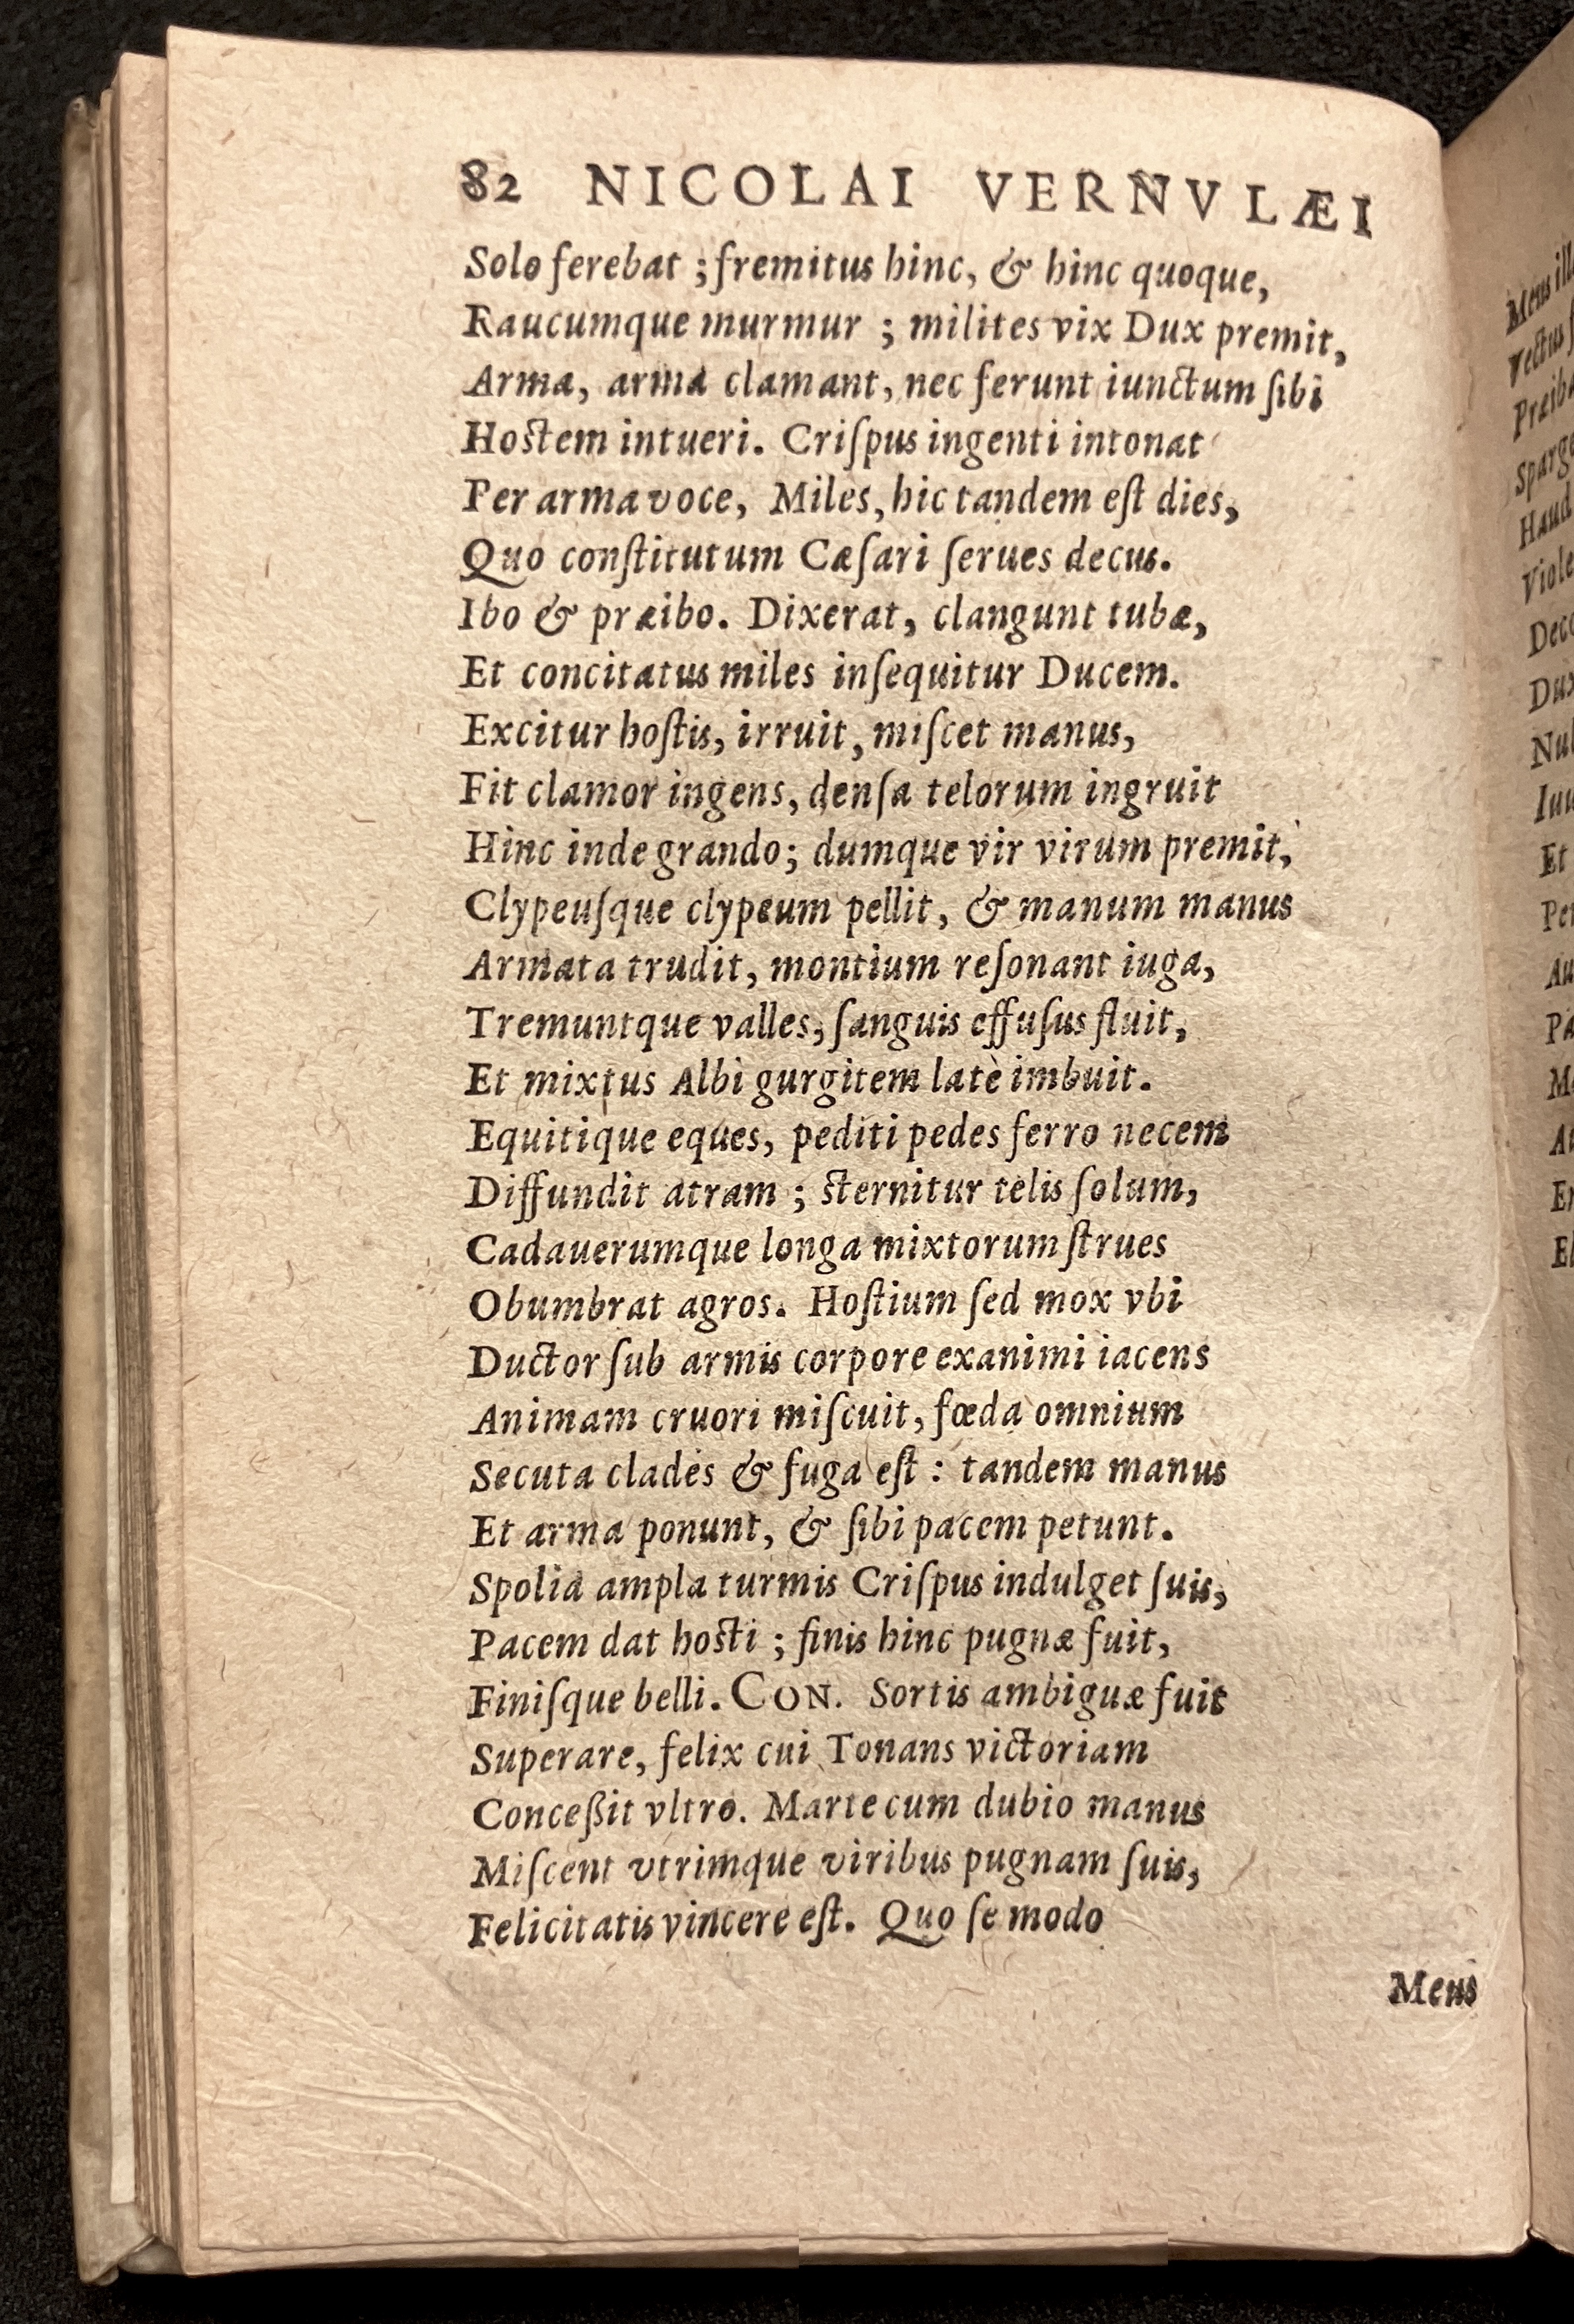 82 NICOLAI VERNVLÆI
Solo ferebat ; fremitus hinc, & hinc quoque,
Raucumque murmur ; milites vix Dux premit,
Arma, arma clamant, nec ferunt iunctum ſibi
Hoſtem intueri. Criſpus ingenti intonat
Per arma voce, Miles, hic tandem eſt dies,
Quo conſtitutum Cæſari ſerues decus.
Ibo & præibo. Dixerat, clangunt tubæ,
Et concitatus miles inſequitur Ducem.
Excitur hoſtis, irruit, miſcet manus,
Fit clamor ingens, denſa telorum ingruit
Hinc inde grando; dumque vir virum premit,
Clypeuſque clypeum pellit, & manum manus
Armata trudit, montium reſonant iuga,
Tremuntque valles, ſanguis effuſus fluit,
Et mixtus Albi gurgitem latè imbuit.
Equitique eques, pediti pedes ferro necem
Diffundit atram ; ſternitur telis ſolum,
Cadauerumque longa mixtorum ſtrues
Obumbrat agros. Hoſtium ſed mox vbi
Ductor ſub armis corpore exanimi iacens
Animam cruori miſcuit, fœda omnium
Secuta clades & fuga eſt : tandem manus
Et arma ponunt, & ſibi pacem petunt.
Spolia ampla turmis Criſpus indulget ſuis,
Pacem dat hoſti ; finis hinc pugnæ fuit,
Finiſque belli. CON. Sortis ambiguæ fuit
Superare, felix cui Tonans victoriam
Conceßit vltro. Marte cum dubio manus
Miſcent vtrimque viribus pugnam ſuis,
Felicitatis vincere eſt. Quo ſe modo
Meus
Meus
Vectus
Et